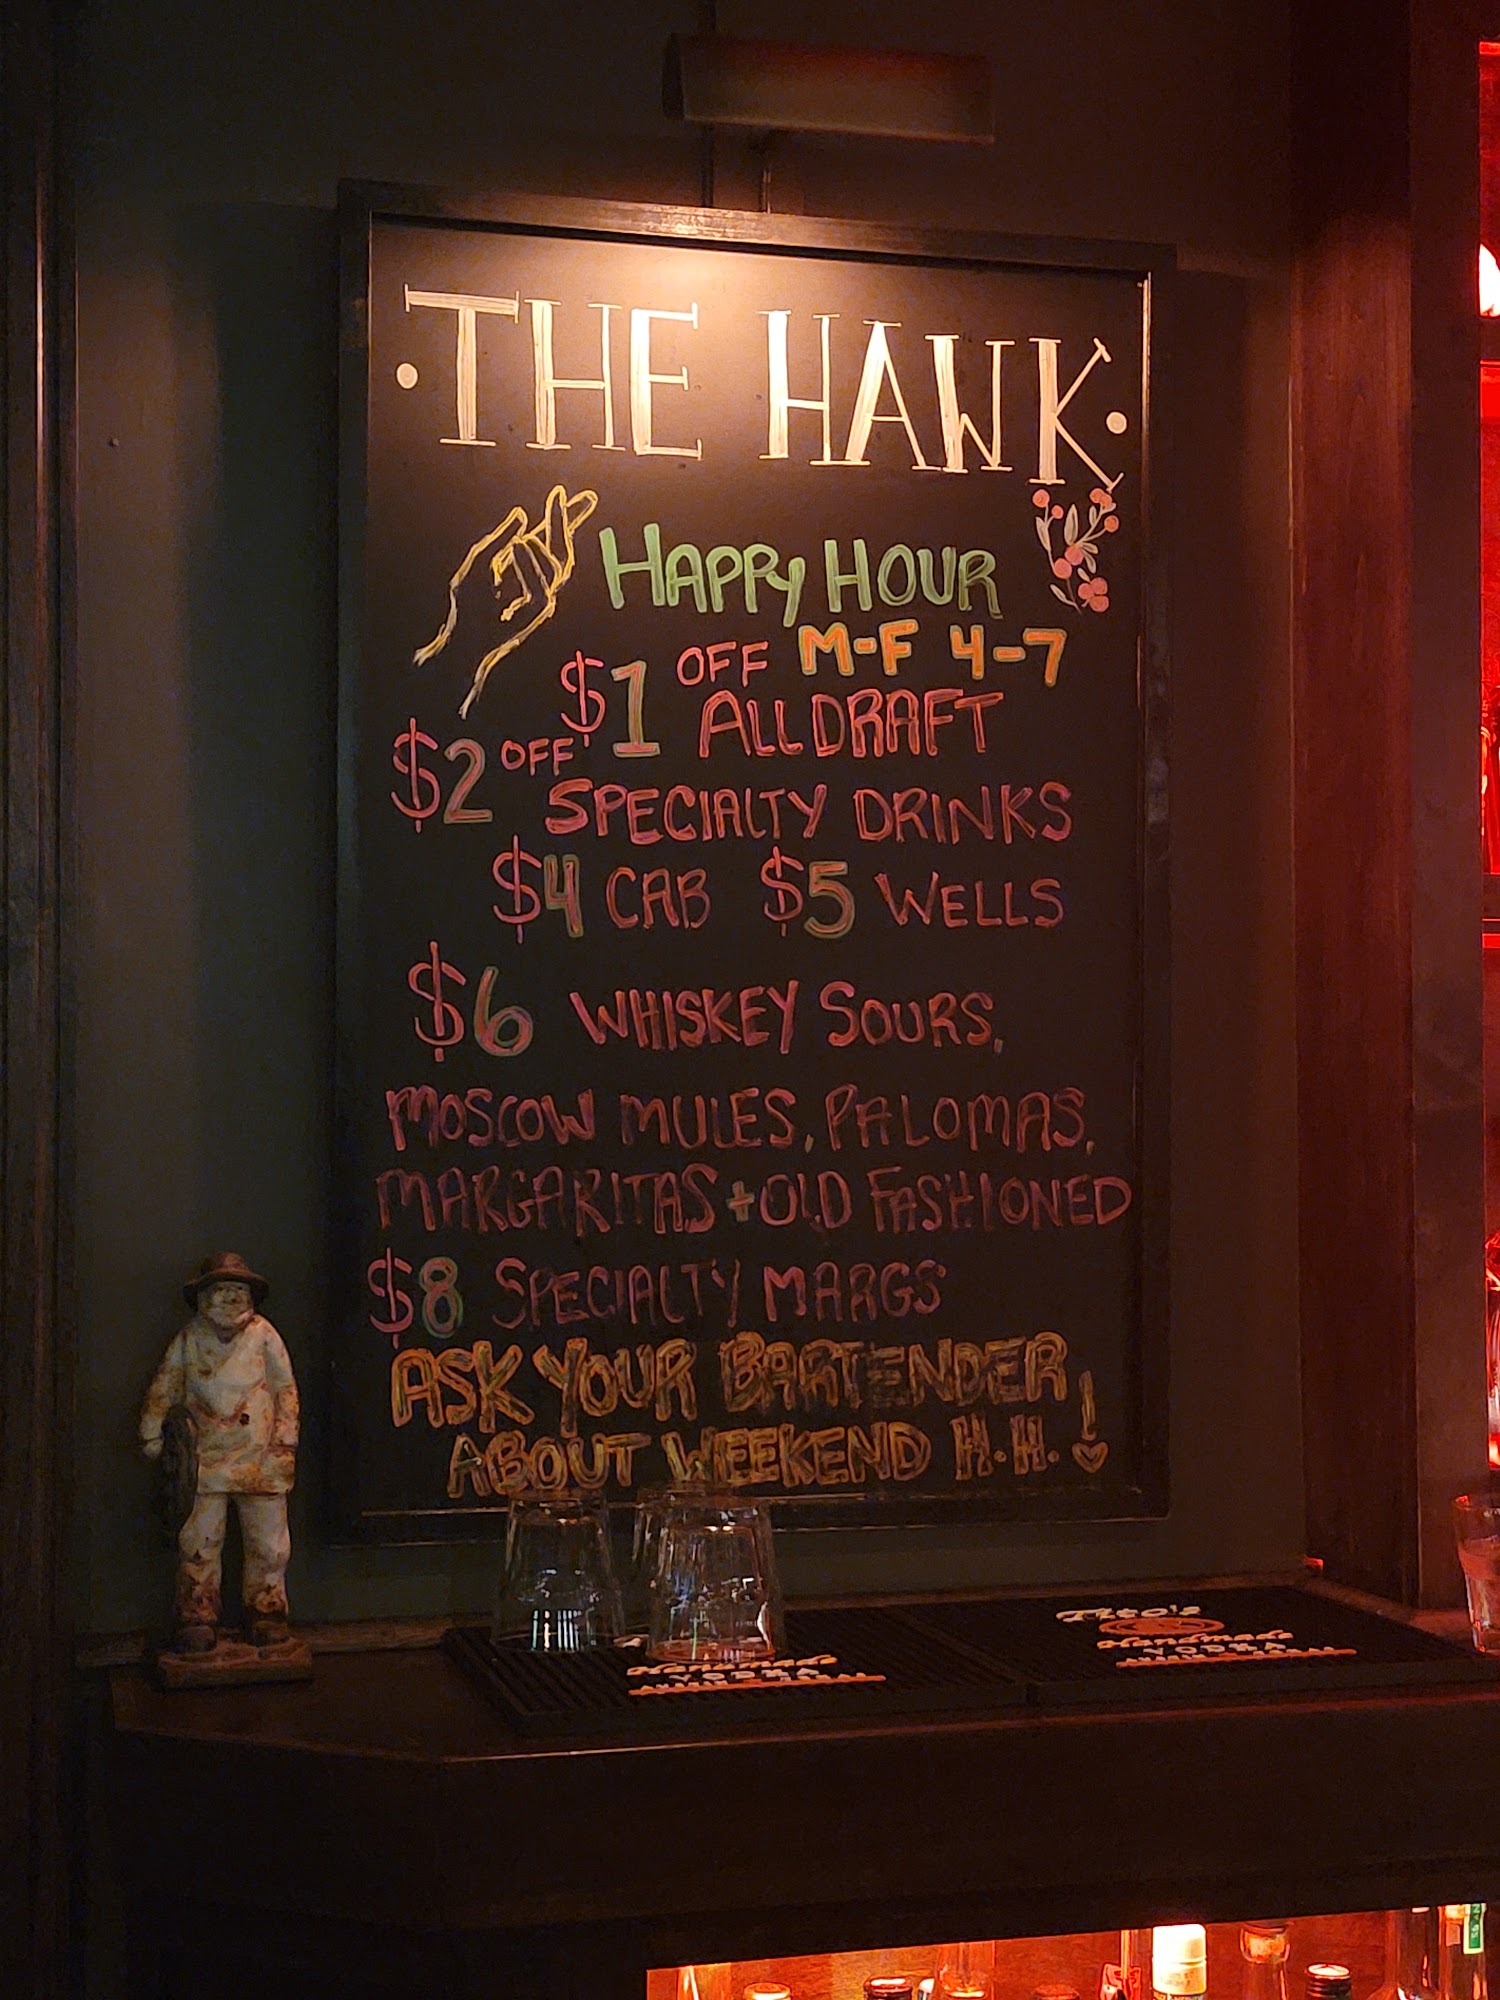 · THE HAWK ·
HAPPY HOUR
M-F 4-7
$1 OFF ALL DRAFT
$2 OFF SPECIALTY DRINKS
$4 CAB $5 WELLS
$6 WHISKEY SOURS,
MOSCOW MULES, PALOMAS,
MARGARITAS + OLD FASHIONED
$8 SPECIALTY MARGS
ASK YOUR BARTENDER
ABOUT WEEKEND H.H.!
Handmade
VODKA
Tito's
Handmade
VODKA